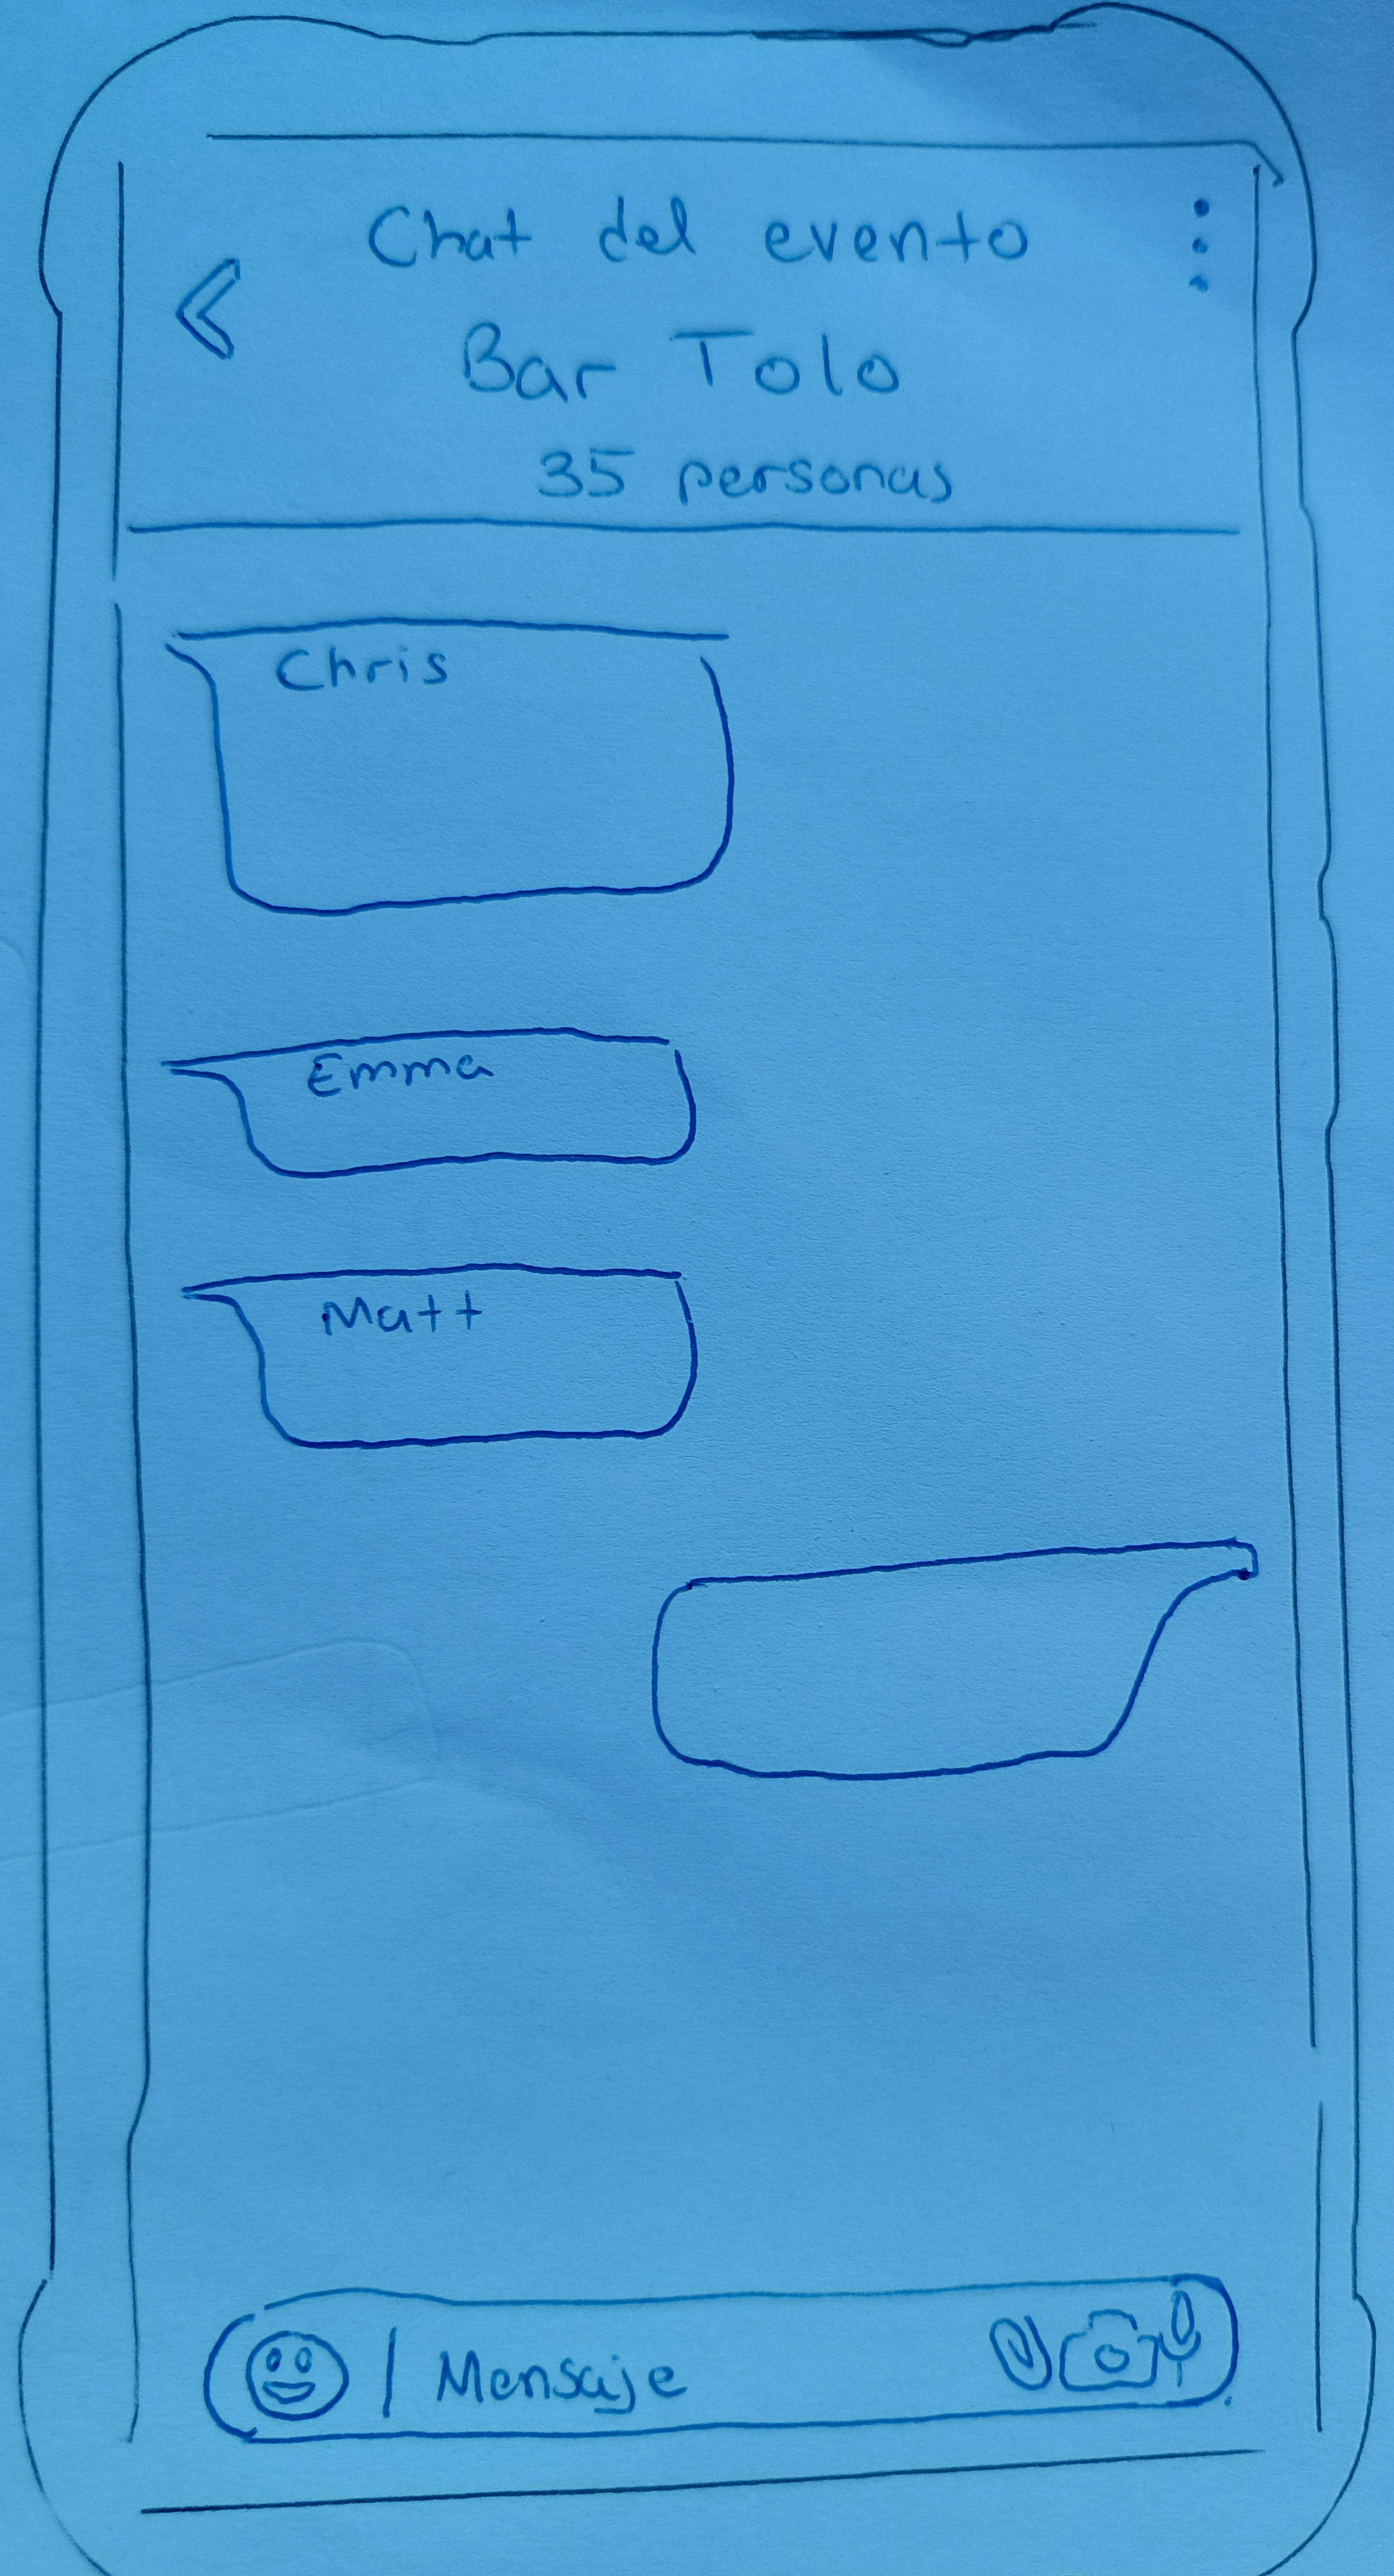 Chat del evento
Bar Tolo
35 personas
Chris
Emma
Matt
Mensaje